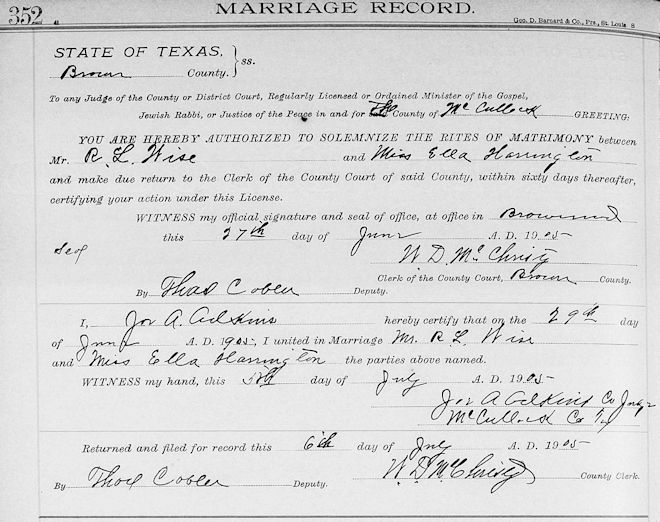 352
MARRIAGE RECORD.
Geo. D. Barnard & Co., Prs., St. Louis 8
STATE OF TEXAS,
Brown County. } ss.
To any Judge of the County or District Court, Regularly Licensed or Ordained Minister of the Gospel,
Jewish Rabbi, or Justice of the Peace in and for said The County of McCulloch GREETING:
YOU ARE HEREBY AUTHORIZED TO SOLEMNIZE THE RITES OF MATRIMONY between
Mr. R. L. Wise and Miss Ella Harrington
and make due return to the Clerk of the County Court of said County, within sixty days thereafter,
certifying your action under this License.
WITNESS my official signature and seal of office, at office in Brownwood
this 27th day of June A. D. 1905
Seal
W. D. McChristy
Clerk of the County Court, Brown County.
By Thad Cobler Deputy.
I, Joe A. Adkins hereby certify that on the 29th day
of June A. D. 1905, I united in Marriage Mr. R L. Wise
and Miss Ella Harrington the parties above named.
WITNESS my hand, this 5th day of July A. D. 1905
Joe A Adkins Co Judge
McCulloch Co Tex
Returned and filed for record this 6th day of July A. D. 1905
By Thad Cobler Deputy. W. D. McChristy County Clerk.